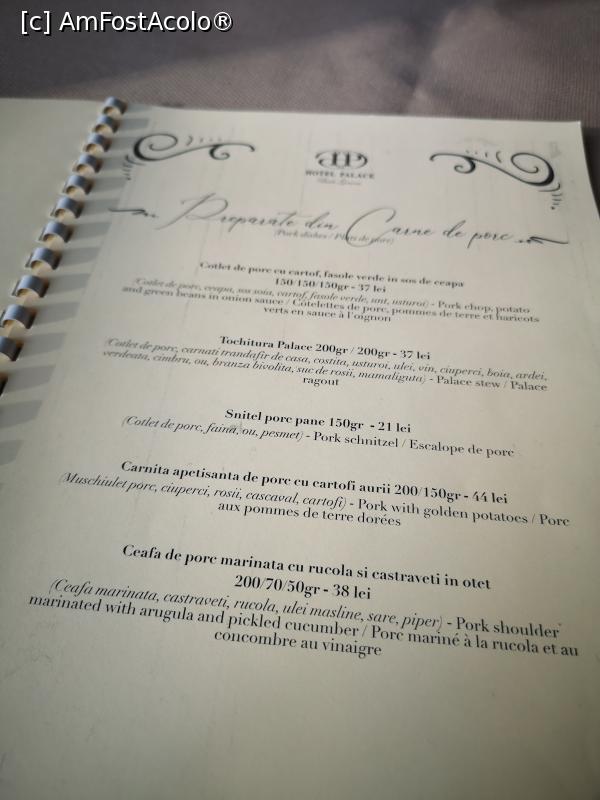 [c] AmFostAcolo®
HP
HOTEL PALACE
Preparate din Carne de porc
(Pork dishes / Plats de porc)
Cotlet de porc cu cartof, fasole verde in sos de ceapa
150/150/150gr - 37 lei
(Cotlet de porc, ceapa, sos soia, cartof, fasole verde, unt, usturoi) - Pork chop, potato
and green beans in onion sauce / Côtelettes de porc, pommes de terre et haricots
verts en sauce à l'oignon
Tochitura Palace 200gr / 200gr - 37 lei
(Cotlet de porc, carnati trandafir de casa, costita, usturoi, ulei, vin, ciuperci, boia, ardei,
verdeata, cimbru, ou, branza bivolita, suc de rosii, mamaliguta) - Palace stew / Palace
ragout
Snitel porc pane 150gr - 21 lei
(Cotlet de porc, faina, ou, pesmet) - Pork schnitzel / Escalope de porc
Carnita apetisanta de porc cu cartofi aurii 200/150gr - 44 lei
(Muschiulet porc, ciuperci, rosii, cascaval, cartofi) - Pork with golden potatoes / Porc
aux pommes de terre dorées
Ceafa de porc marinata cu rucola si castraveti in otet
200/70/50gr - 38 lei
(Ceafa marinata, castraveti, rucola, ulei masline, sare, piper) - Pork shoulder
marinated with arugula and pickled cucumber / Porc mariné à la rucola et au
concombre au vinaigre